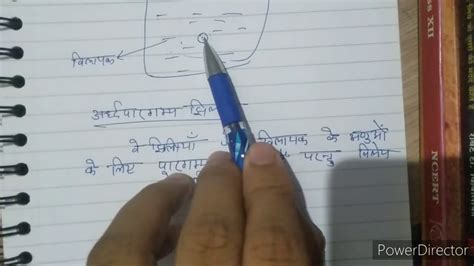 विलायक
अर्धपारगम्य झिल
वे झिल्लीयाँ विलायक के अणुओं
के लिए पारगम्य परन्तु विलेय
ss XII
NCERT
PowerDirector